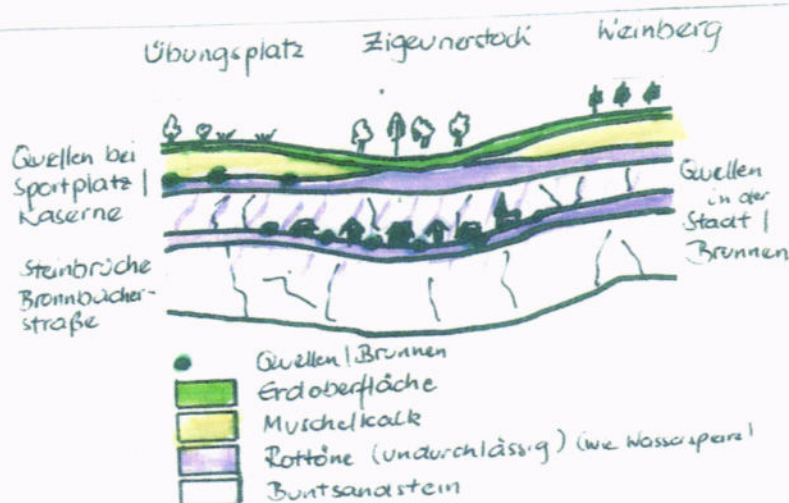 Übungsplatz Zigeunerstock Weinberg
Quellen bei
Sportplatz |
Kaserne
Quellen
in der
Stadt |
Brunnen
Steinbrüche
Bronnbacher-
straße
Quellen | Brunnen
Erdoberfläche
Muschelkalk
Rottöne (undurchlässig) (wie Wassersperre)
Buntsandstein